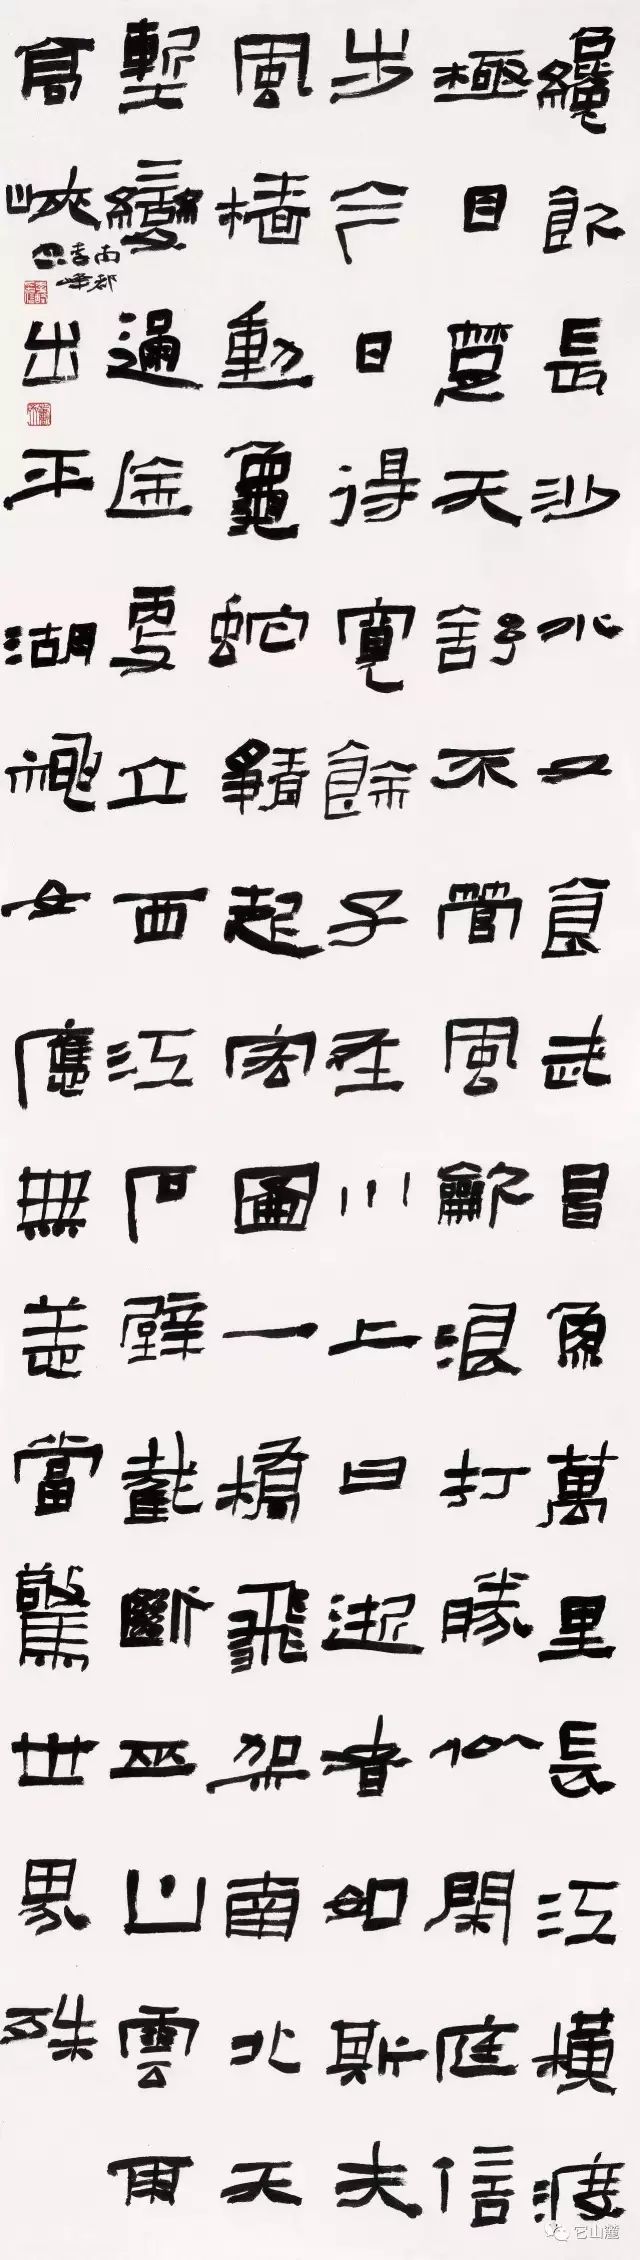 纔飲長沙水又食武昌魚萬里長江橫渡
極目楚天舒不管風龡浪打勝似閑庭信
步今日得寬餘子在川上曰逝者如斯夫
風檣動龜蛇靜起宏圖一橋飛架南北天
塹變通途更立西江石壁截斷巫山雲雨
高峽出平湖神女應無恙當驚世界殊
南都
李峰
它山